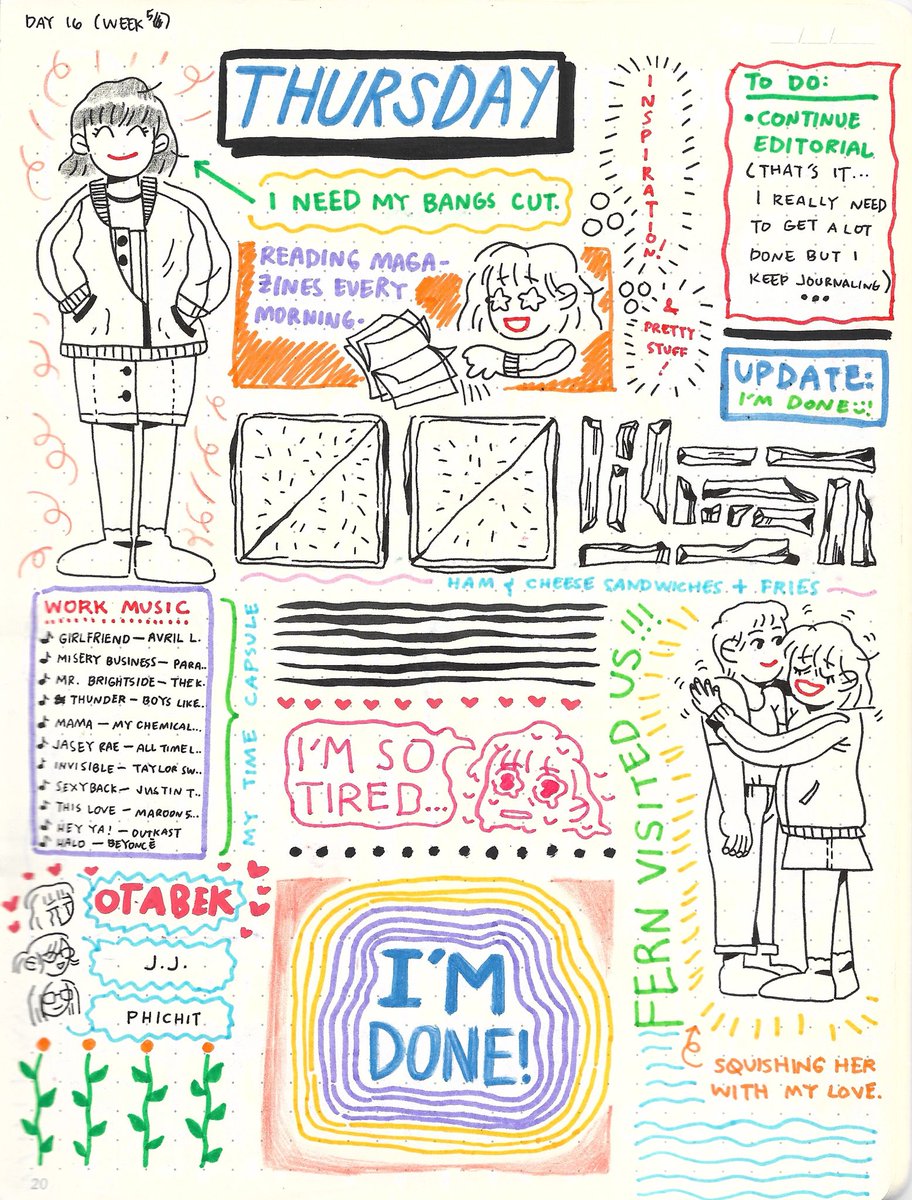 DAY 16 (WEEK 5/6)
THURSDAY
I NEED MY BANGS CUT.
READING MAGA-
ZINES EVERY
MORNING.
INSPIRATION!
&
PRETTY
STUFF!
TO DO:
• CONTINUE
EDITORIAL
(THAT'S IT...
I REALLY NEED
TO GET A LOT
DONE BUT I
KEEP JOURNALING)
...
UPDATE:
I'M DONE!
HAM & CHEESE SANDWICHES + FRIES
WORK MUSIC
GIRLFRIEND — AVRIL L.
MISERY BUSINESS — PARA..
MR. BRIGHTSIDE — THE K.
THUNDER — BOYS LIKE..
MAMA — MY CHEMICAL...
JASEY RAE — ALL TIME L..
INVISIBLE — TAYLOR SW..
SEXYBACK — JUSTIN T..
THIS LOVE — MAROON 5...
HEY YA! — OUTKAST
HALO — BEYONCÉ
MY TIME CAPSULE
I'M SO
TIRED...
FERN VISITED US!!!
OTABEK
J.J.
PHICHIT
I'M
DONE!
SQUISHING HER
WITH MY LOVE.
20